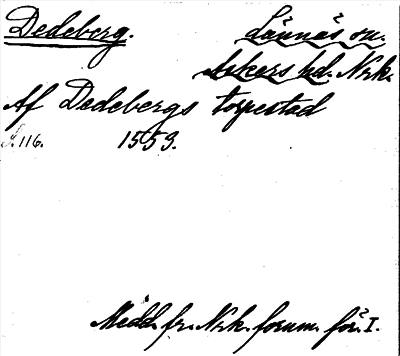 Dedeberg. Lännäs sn.
Askers hd. Nrk.
Af Dedebergs torpestad
S. 116. 1559.
Medd. fr. Nrk. fornm. för. I.